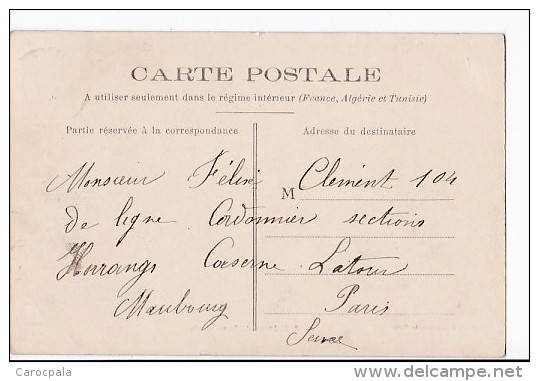 CARTE POSTALE
A utiliser seulement dans le régime intérieur (France, Algérie et Tunisie)
Partie réservée à la correspondance
Adresse du destinataire
Monsieur Félix M Clément 104
de ligne Cordonnier sections
Horrangs Caserne Latour
Maubourg Paris
Seine
Carocpala
delcampe.net